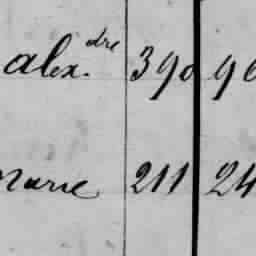 alex.dre 390 90
Marie 211 24